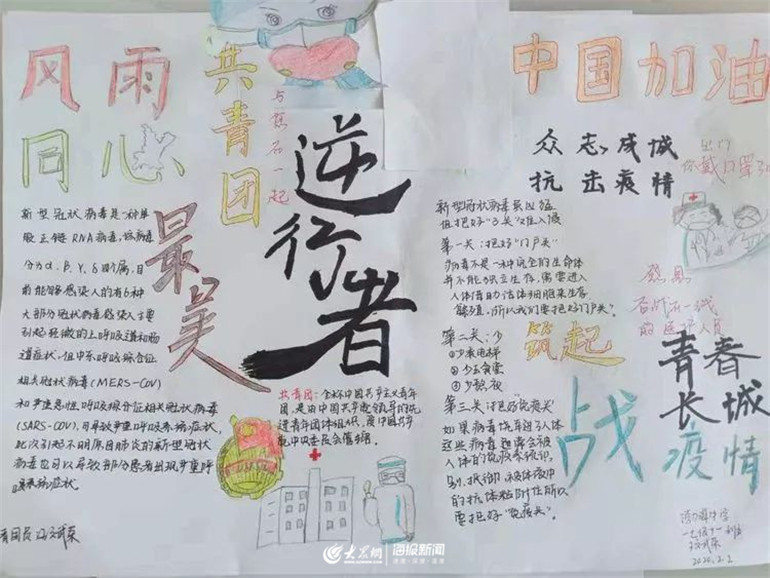 风雨
同心
共青团
与您在一起
最美
逆行者
中国加油
众志成城
抗击疫情
出门
你戴口罩了
新型冠状病毒是一种单
股正链RNA病毒,
分α、β、γ、δ四个属,目
前能够感染人的有6种
大部分冠状病毒感染人主要
引起轻微的上呼吸道和肠
道症状,但中东呼吸综合征
相关冠状病毒(MERS-COV)
和严重急性呼吸综合征相关冠状病毒
(SARS-COV),可导致严重呼吸系统症状,
此次引起不明原因肺炎的新型冠状
病毒也可以导致部分患者出现严重呼
吸系统症状。
共青团:全称中国共产主义青年
团,是由中国共产党领导的先
进青年团体组织,
新型冠状病毒虽凶猛
但把好“3关”难入侵
第一关:把好“门户关”
病毒不是一种完全的生命体
并不能独立生存,需要进入
人体借助活体细胞来生存
繁殖,所以我们要把好门户关。
第二关:少
①少乘电梯
②少去食堂
③少熬夜
第三关:把好“免疫关”
如果病毒侥幸进了人体
这些病毒通常会被
人体的免疫系统识
别,抵御,
要把好“免疫关”。
致敬
奋战在一线
的医护人员
筑起
青春
长城
战疫情
2020.2.2
大众网 海报新闻